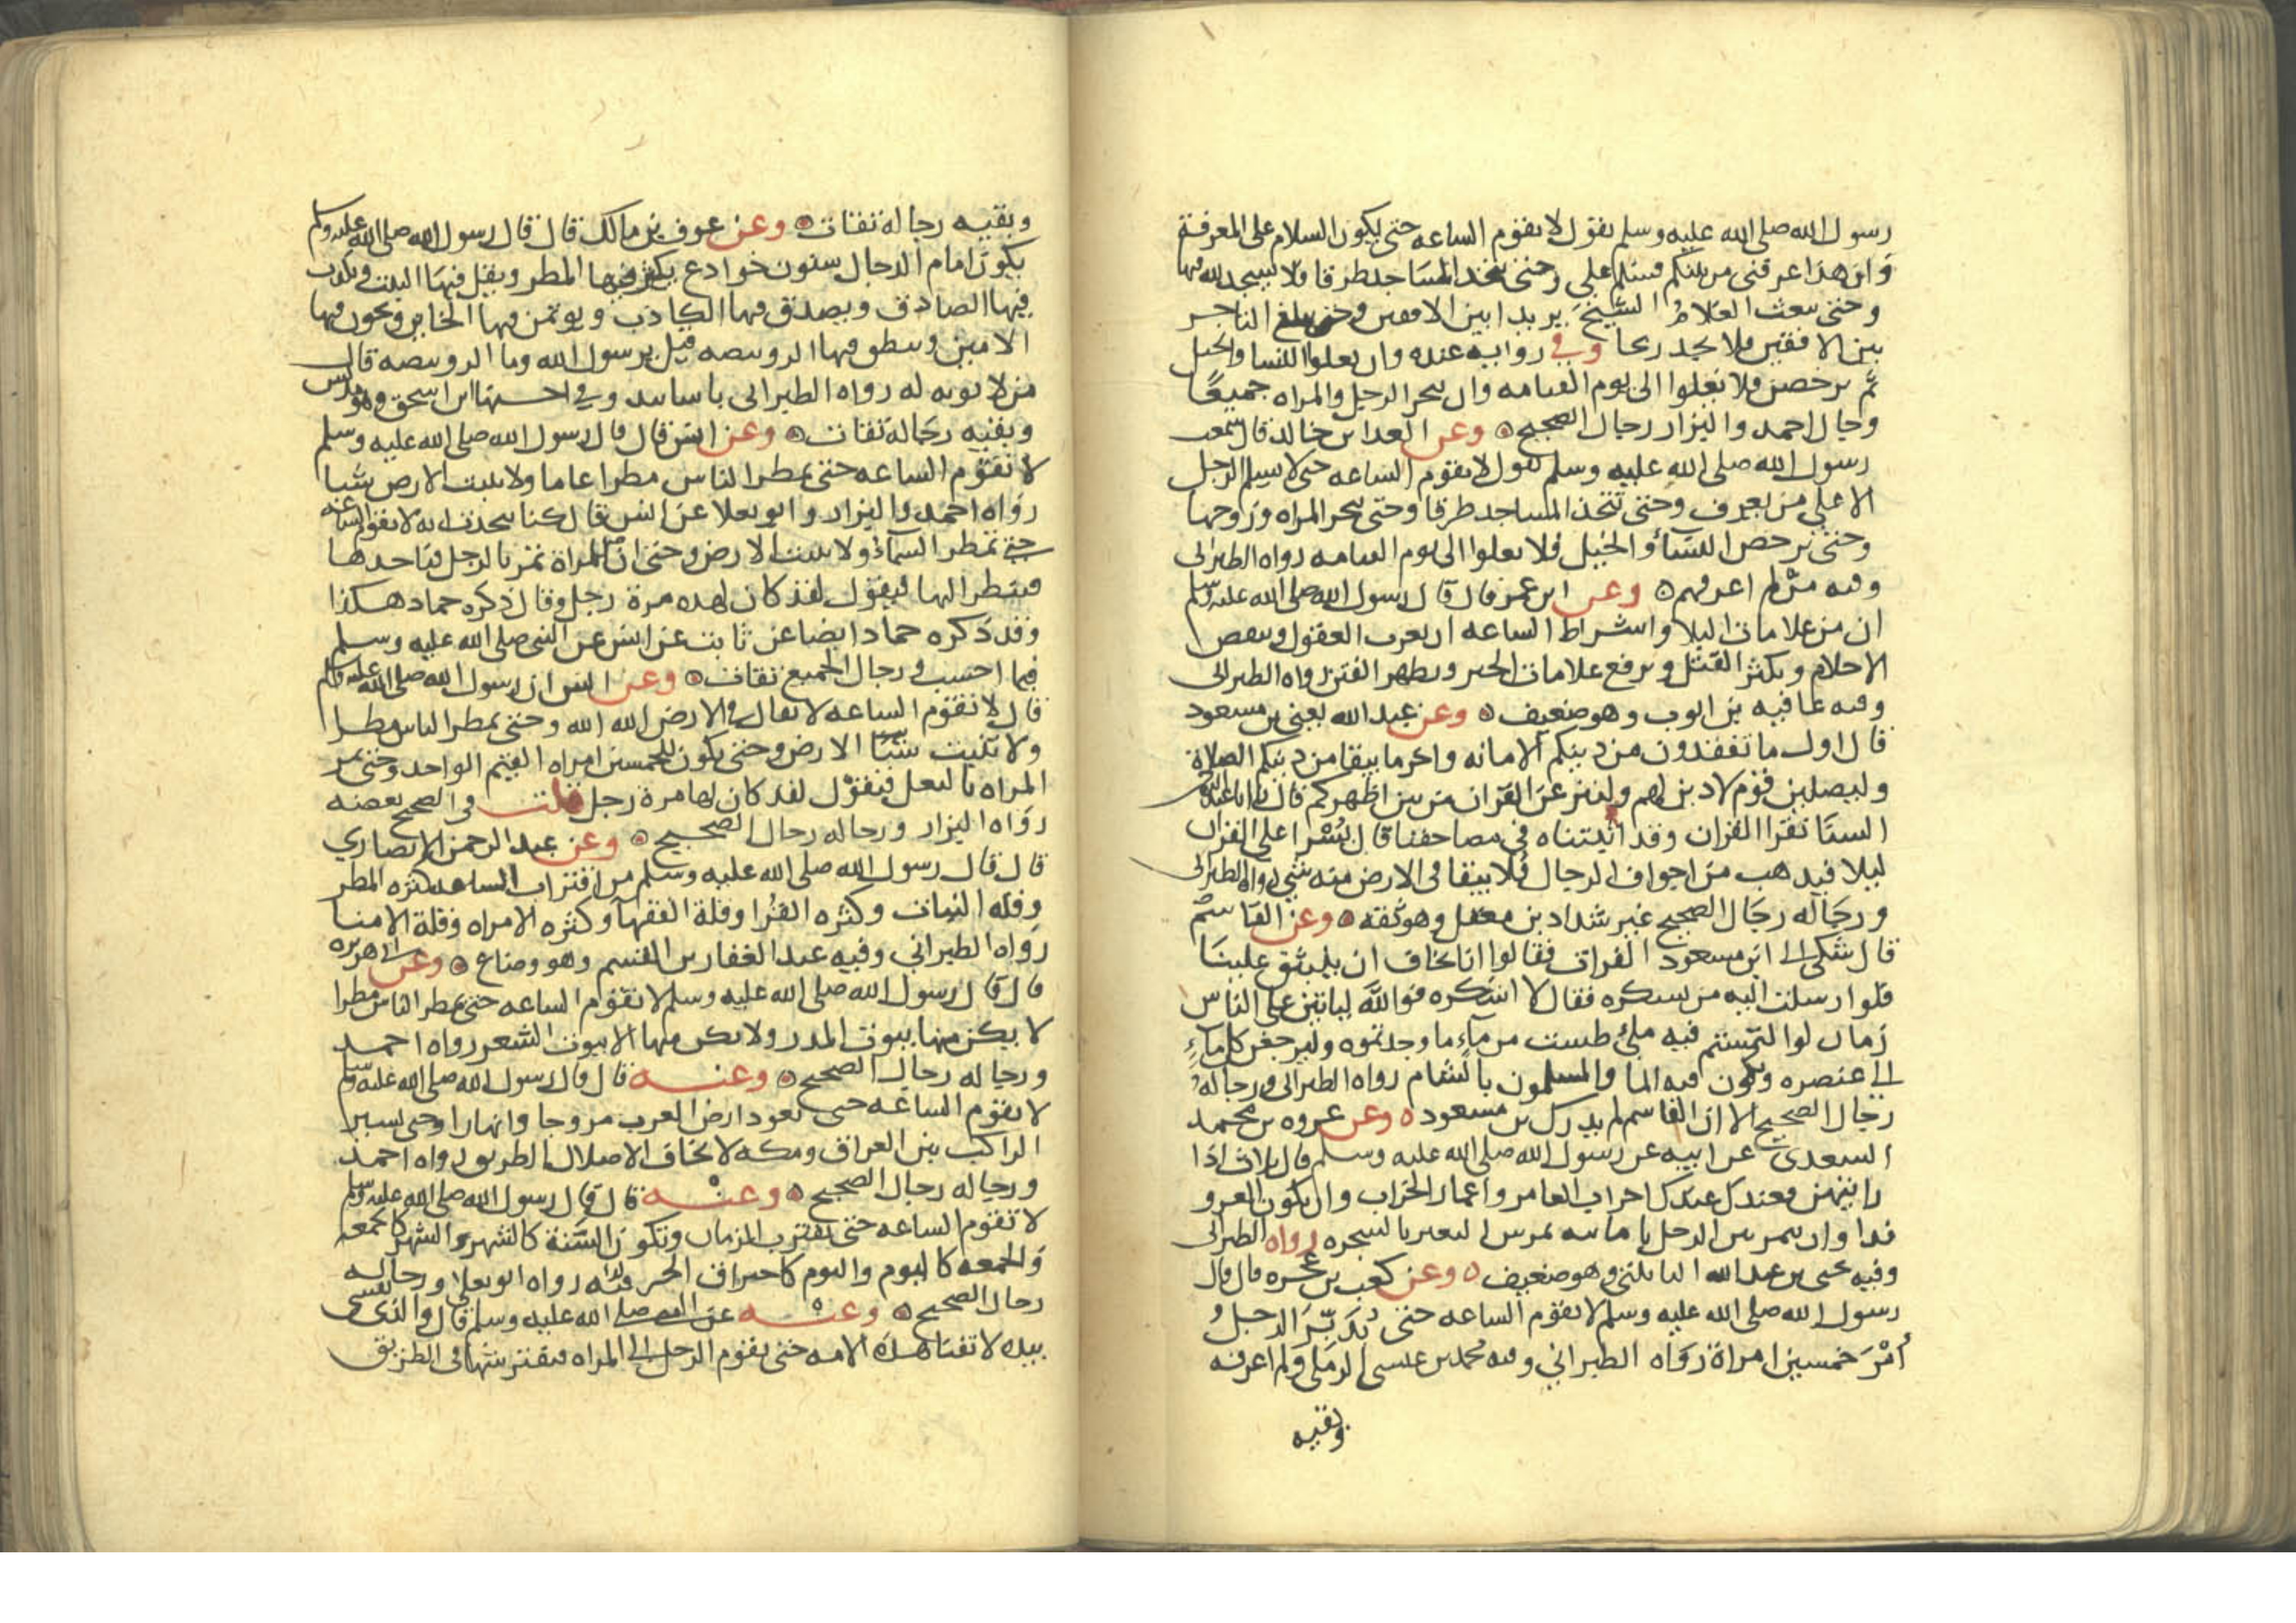 رسول الله صلى الله عليه وسلم يقول لا تقوم الساعه حتى يكون السلام على المعرفة
وان هذا عرفنى من بينكم فسلم على وحتى تتخذ المساجد طرقا فلا يسجد لله فيها
وحتى يبعث الغلام الشيخ بريدا بين الافقين وحتى يبلغ التاجر
بين الافقين فلا يجد ربحا وفي روايه عنده وان يغلوا النسا والخيل
ثم ترخص فلا تغلوا الى يوم القيامه وان يتجر الرجل والمراه جميعا
ورجال احمد والبزار رجال الصحيح وعن العدا بن خالد قال سمعت
رسول الله صلى الله عليه وسلم يقول لا تقوم الساعه حتى لا يسلم الرجل
الا على من يعرف وحتى تتخذ المساجد طرقا وحتى تتجر المراه وزوجها
وحتى ترخص النساؤ الخيل فلا يغلوا الى يوم القيامه رواه الطبرانى
وفيه من لم اعرفهم وعن ابن عمر قال قال رسول الله صلى الله عليه وسلم
ان من علامات البلا واشراط الساعه ان يعزب العقول وينقص
الاحلام ويكثر القتل ويرفع علامات الخير ويظهر الفتن رواه الطبرانى
وفيه عافيه بن ايوب وهو ضعيف وعن عبد الله يعني بن مسعود
قال اول ما تفقدون من دينكم الامانه واخر ما يبقا من دينكم الصلاة
وليصلين قوم لا دين لهم ولينزعن القران من بين اظهركم قال يا ابا عبد الرحمن
السنا نقرا القران وقد اثبتناه في مصاحفنا قال يسرا على القران
ليلا فيذهب من اجواف الرجال فلا يبقا فى الارض منه شي رواه الطبرانى
ورجاله رجال الصحيح غير شداد بن معقل وهو ثقه وعن القاسم
قال شكى الى ابن مسعود الفرات فقالوا انا نخاف ان ينبثق علينا
فلوا رسلت اليه من يسكره فقال لا اسكره فوالله لياتين على الناس
زمان لوا التمستم فيه ملئ طست من ماء ما وجدتموه وليرجعن كل ماء
الى عنصره ويكون فيه الما والمسلمون بالشام رواه الطبرانى ورجاله
رجال الصحيح الا ان القاسم لم يدرك بن مسعود وعن عروه بن محمد
السعدى عن ابيه عن رسول الله صلى الله عليه وسلم قال ثلاث اذا
رايتهن فعندك عندك اخراب العامر واعمار الخراب وان يكون الغزو
فدا وان يتمرس الرجل بامانته تمرس البعير بالشجره رواه الطبرانى
وفيه يحيى بن عبد الله البابلتى وهو ضعيف وعن كعب بن عجره قال قال
رسول الله صلى الله عليه وسلم لا تقوم الساعه حتى يدبر الرجل
أمر خمسين امراة رواه الطبرانى وفيه محمد بن عيسى الرملى ولم اعرفه
وبقيه
وبقيه رجاله ثقات وعن عوف بن مالك قال قال رسول الله صلى الله عليه وسلم
يكون امام الدجال سنون خوادع يكثر فيها المطر ويقل فيها النبت ويكذب
فيها الصادق ويصدق فيها الكاذب ويوتمن فيها الخاين ويخون فيها
الامين وينطق فيها الرويبضه قيل يرسول الله وما الرويبضه قال
من لا يوبه له رواه الطبرانى باسانيد وفي احسنها ابن اسحق وهو مدلس
وبقيه رجاله ثقات وعن انس قال قال رسول الله صلى الله عليه وسلم
لا تقوم الساعه حتى يمطر الناس مطرا عاما ولا تنبت الارض شيا
رواه احمد والبزار وابو يعلا عن انس قال كنا نتحدث انه لا تقوم الساعه
حتى تمطر السماء ولا تنبت الارض وحتى ان المراة تمر بالرجل فياخذها
فينظر اليها فيقول لقد كان لهذه مرة رجل وقال ذكره حماد هكذا
وقد ذكره حماد ايضا عن ثابت عن انس عن النبى صلى الله عليه وسلم
فيما احسب ورجال الجميع ثقات وعن انس ان رسول الله صلى الله عليه وسلم
قال لا تقوم الساعه لا يقال في الارض الله الله وحتى يمطر الناس مطرا
ولا تنبت شيا الارض وحتى يكون للخمسين امراه القيم الواحد وحتى تمر
المراه بالنعل فيقول لقد كان لها مرة رجل قلت فى الصحيح بعضه
رواه البزار ورجاله رجال الصحيح وعن عبد الرحمن الانصاري
قال قال رسول الله صلى الله عليه وسلم من اقتراب الساعه كثره المطر
وقله النبات وكثره القرا وقلة الفقها وكثره الامراه وقلة الامنا
رواه الطبراني وفيه عبد الغفار بن القسم وهو وضاع وعن ابى هريره
قال قال رسول الله صلى الله عليه وسلم لا تقوم الساعه حتى يمطر الناس مطرا
لا يكن منها بيوت المدر ولا يكن منها الا بيوت الشعر رواه احمد
ورجاله رجال الصحيح وعنه قال قال رسول الله صلى الله عليه وسلم
لا تقوم الساعه حتى تعود ارض العرب مروجا وانهارا وحتى يسير
الراكب بين العراق ومكه لا يخاف الا ضلال الطريق رواه احمد
ورجاله رجال الصحيح وعنه قال قال رسول الله صلى الله عليه وسلم
لا تقوم الساعه حتى يقترب الزمان وتكون السنة كالشهر والشهر كالجمعه
والجمعه كاليوم واليوم كاحتراق الخرقه رواه ابو يعلا ورجاله
رجال الصحيح وعنه عن النبى صلى الله عليه وسلم قال والذى نفسى
بيده لا تفنا هذه الامه حتى يقوم الرجل الى المراه فيفترشها فى الطريق